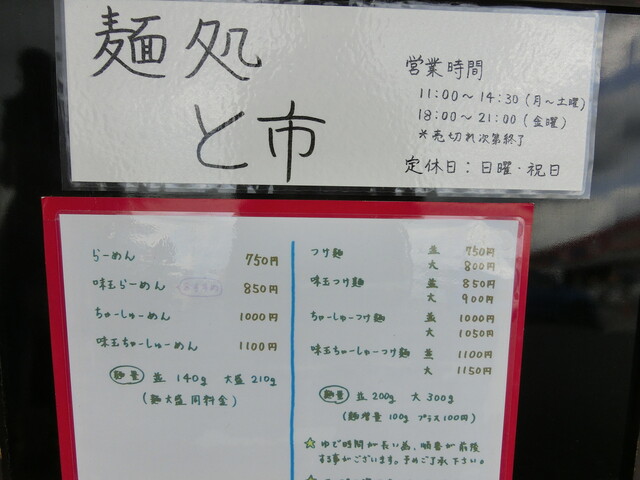 麺処
と市
営業時間
11:00～14:30(月～土曜)
18:00～21:00(金曜)
※売切れ次第終了
定休日：日曜・祝日
らーめん 750円
味玉らーめん おすすめ 850円
ちゅーしゅーめん 1000円
味玉ちゅーしゅーめん 1100円
麺量 並140g 大盛210g
(麺大盛同料金)
つけ麺 並 750円
大 800円
味玉つけ麺 並 850円
大 900円
ちゅーしゅーつけ麺 並 1000円
大 1050円
味玉ちゅーしゅーつけ麺 並 1100円
大 1150円
麺量 並200g 大300g
(麺増量100gプラス100円)
☆ゆで時間が長い為、順番が前後
する事がございます。予めご了承下さい。